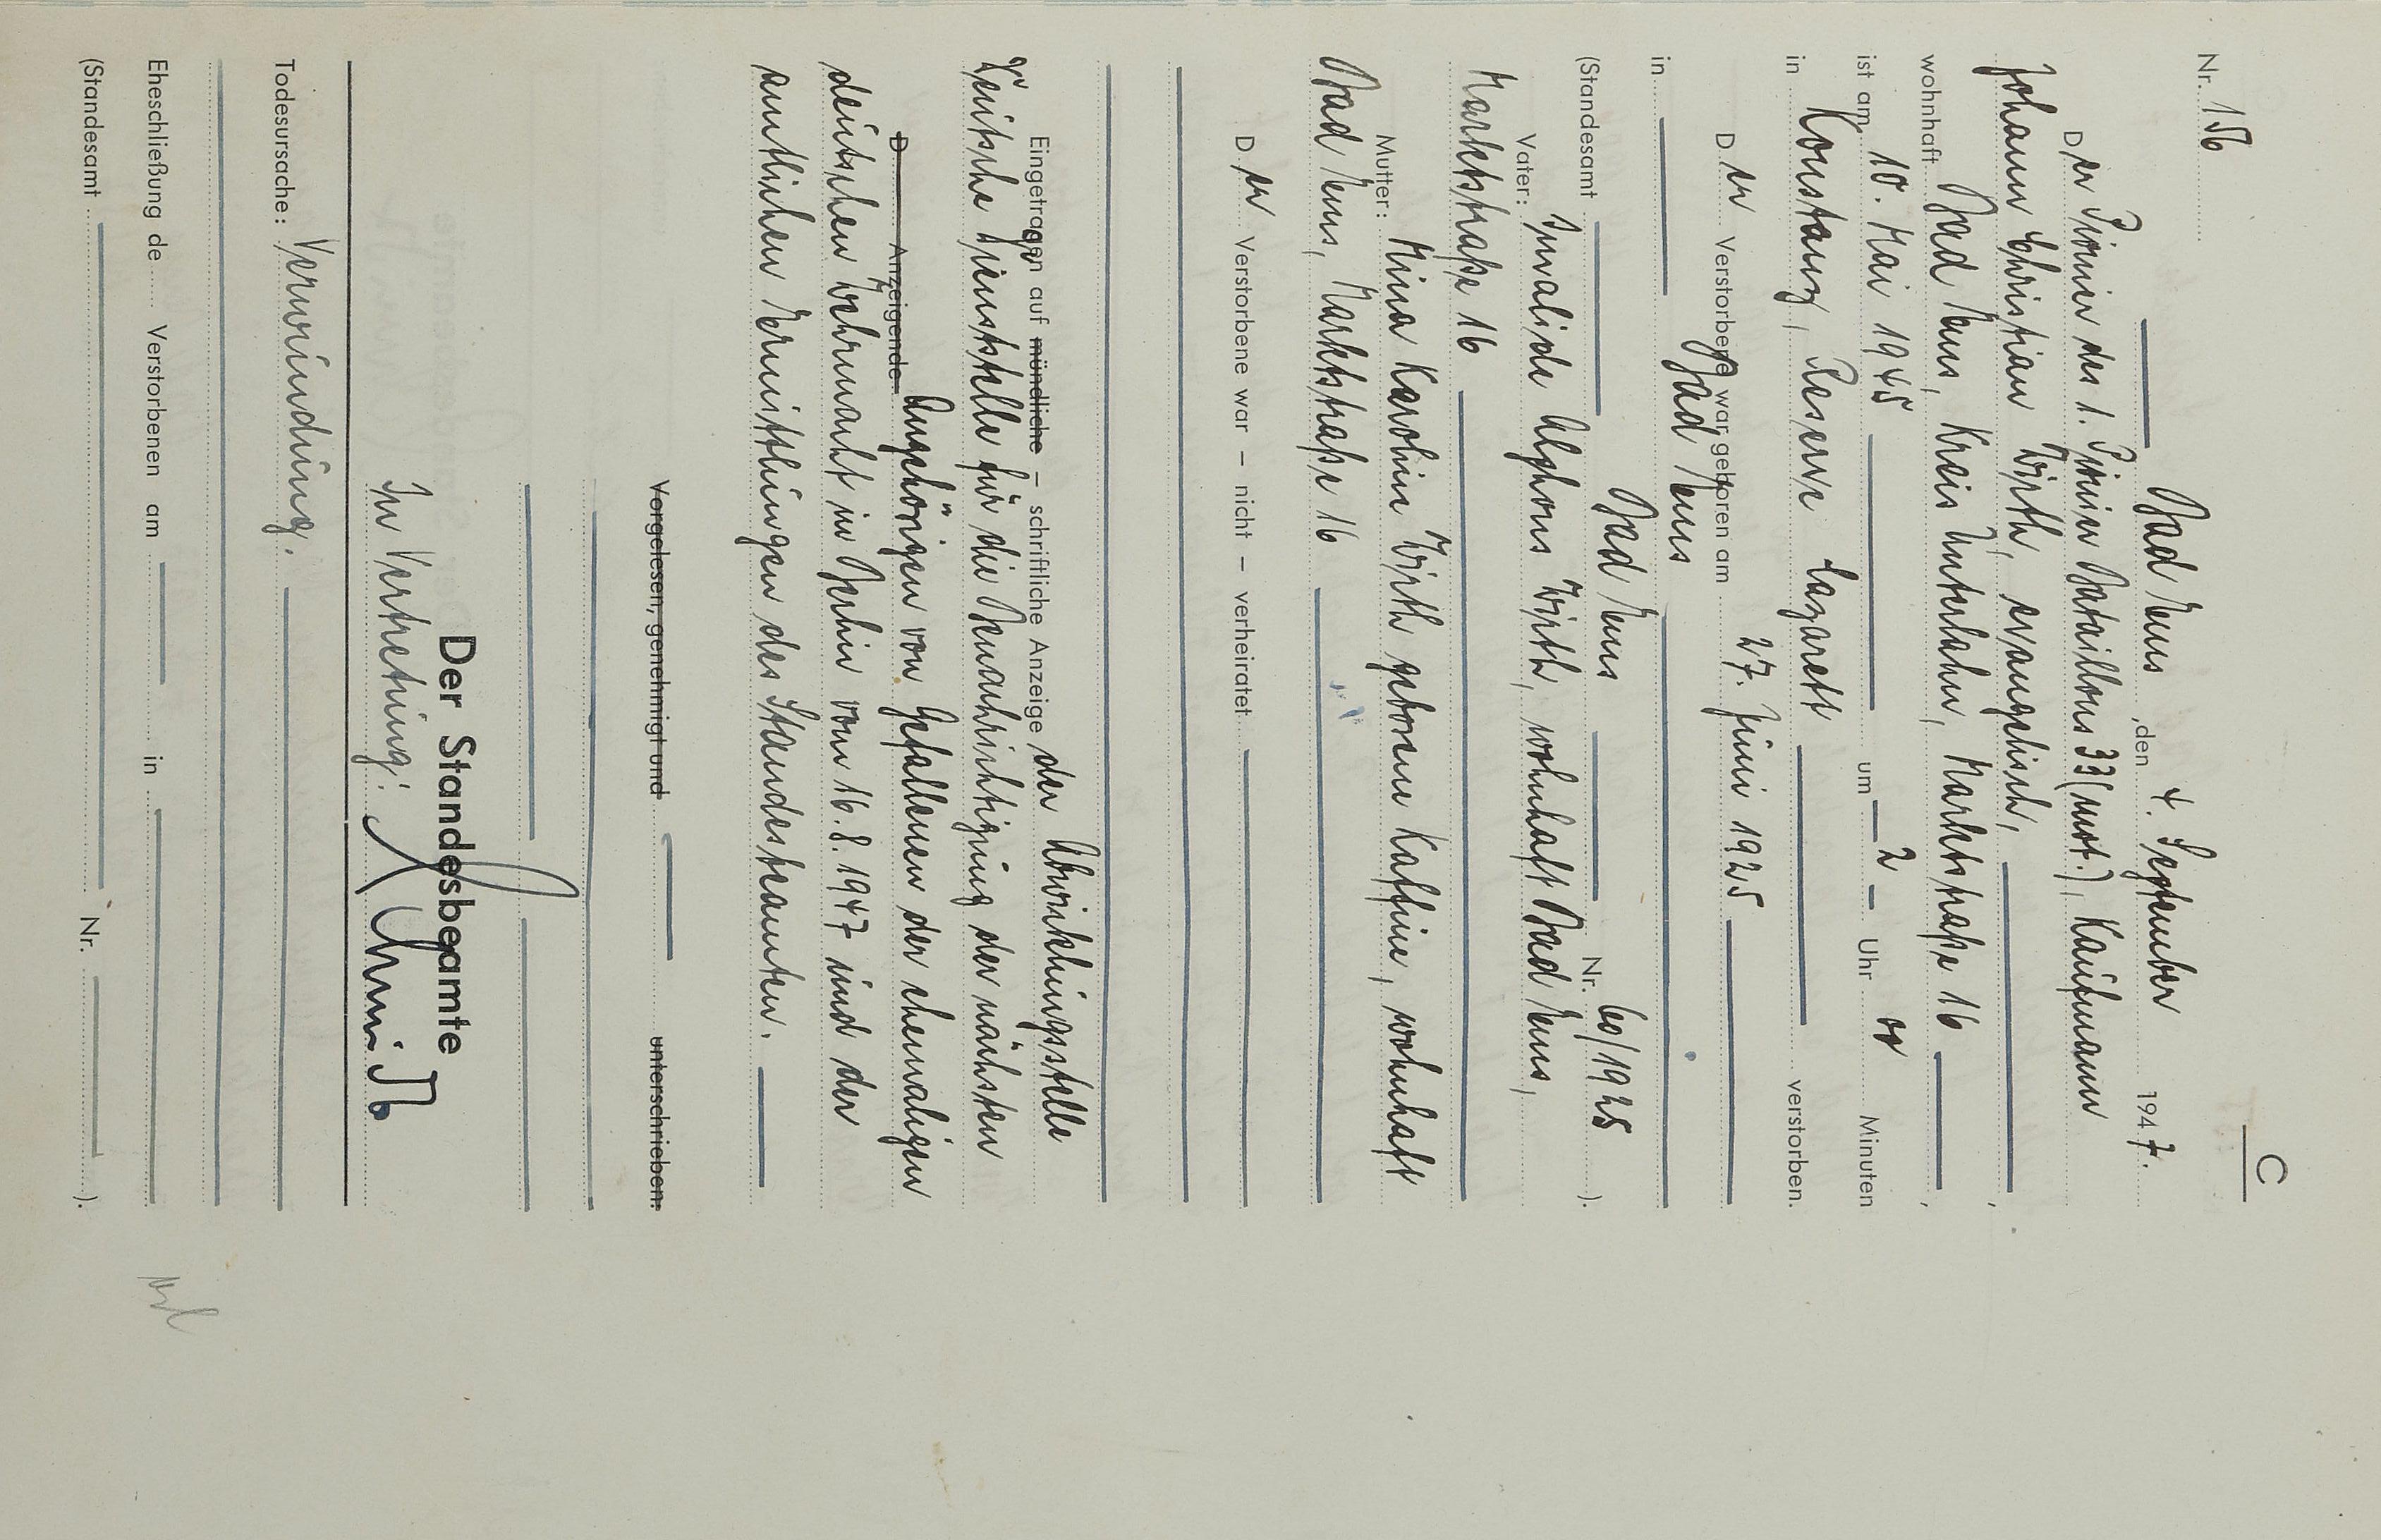 C
Nr. 156
Bad Ems, den 4. September 1947.
Der Pionier des 1. Pionier Bataillons 33 (mot.), Kaufmann
Johann Christian Wirth, evangelisch,
wohnhaft Bad Ems, Kreis Unterlahn, Marktstraße 16,
ist am 10. Mai 1945 um 2 Uhr Minuten
in Konstanz, Reserve Lazarett verstorben.
Der Verstorbene war geboren am 27. Juni 1925
in Bad Ems
(Standesamt Bad Ems Nr. 60/1925).
Vater: Invalide Alfons Wirth, wohnhaft Bad Ems,
Marktstraße 16
Mutter: Mina Karoline Wirth geborene Kaffine, wohnhaft
Bad Ems, Marktstraße 16
Der Verstorbene war – nicht – verheiratet
Eingetragen auf mündliche – schriftliche Anzeige der Abwicklungsstelle
Deutsche Dienststelle für die Benachrichtigung der nächsten
D Anzeigende Angehörigen von Gefallenen der ehemaligen
deutschen Wehrmacht in Berlin vom 16.8.1947 und der
amtlichen Ermittlungen des Standesbeamten.
Vorgelesen, genehmigt und unterschrieben:
Der Standesbeamte
In Vertretung:
Todesursache: Verwundung.
Eheschließung de Verstorbenen am in
(Standesamt Nr. ).